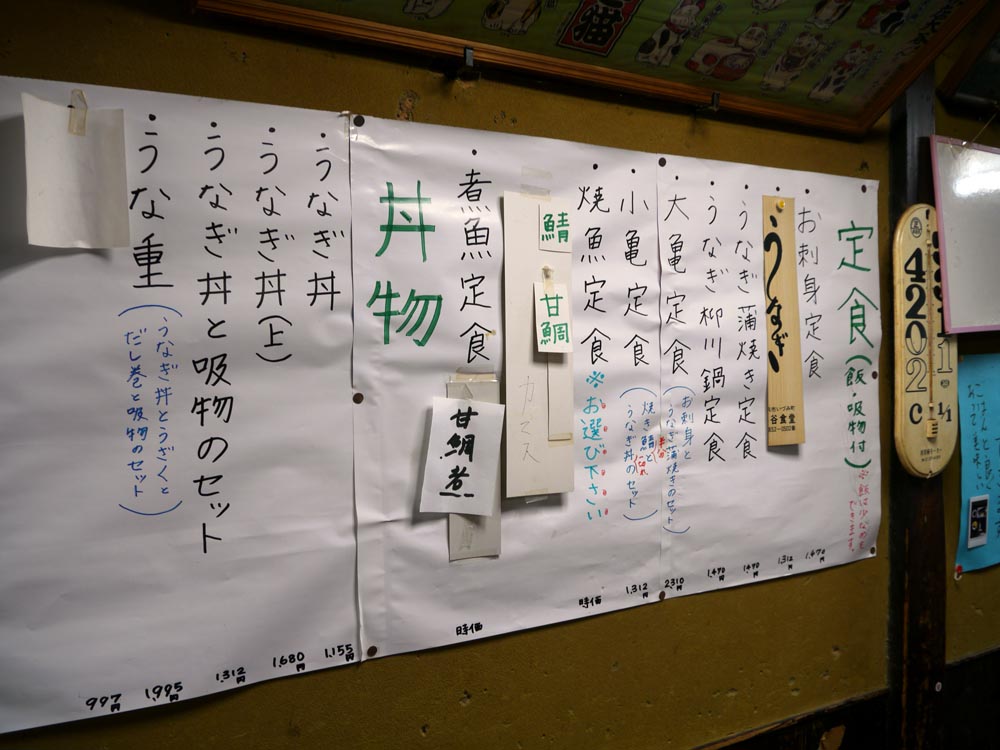 定食(飯・吸物付)
※飯は少なめもできます。
・お刺身定食
1,470円
うなぎ
谷食堂
1,312円
・うなぎ蒲焼き定食
1,470円
・うなぎ柳川鍋定食
1,470円
・大亀定食
(お刺身と
うなぎ蒲焼きのセット)
2,310円
・小亀定食
うなぎ丼のセット)
1,312円
・焼魚定食
※お選び下さい
時価
鯖
甘鯛
カマス
・煮魚定食
甘鯛煮
時価
丼物
・うなぎ丼
1,155円
・うなぎ丼(上)
1,680円
・うなぎ丼と吸物のセット
1,312円
・うな重
1,995円
(うなぎ丼とうざくと
だし巻と吸物のセット)
997円